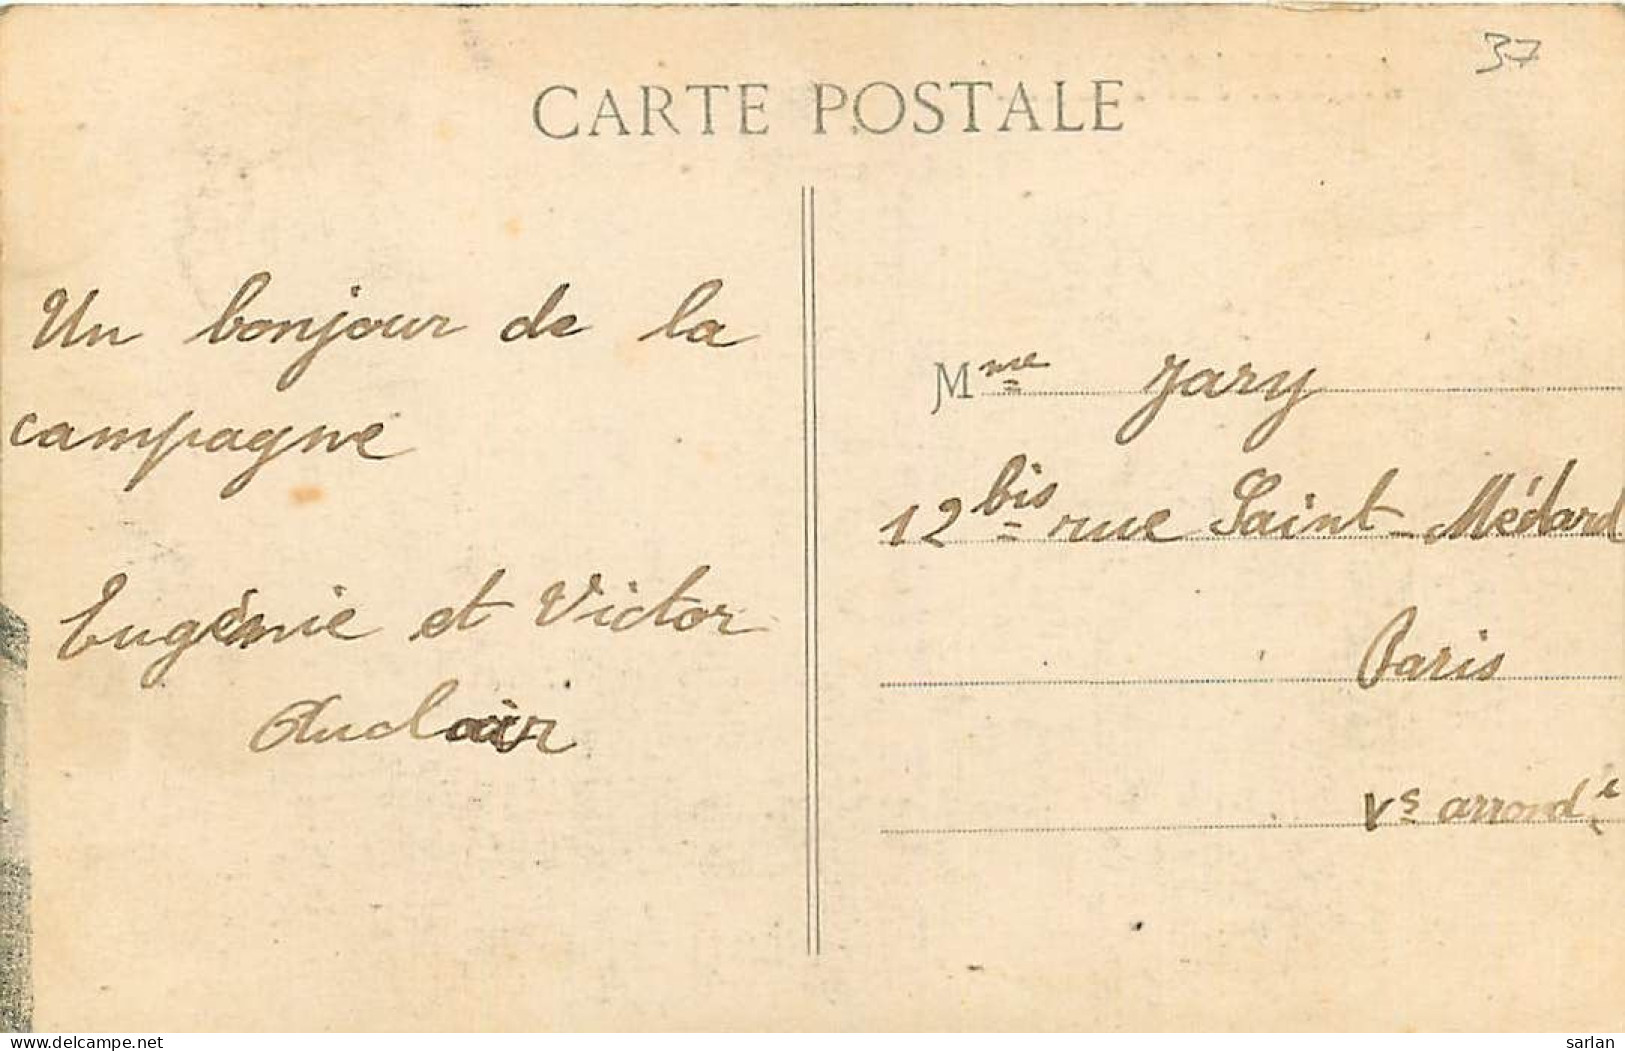 37
CARTE POSTALE
Un bonjour de la
campagne
Eugénie et Victor
Auclair
Mme Jary
12 bis rue Saint-Médard
Paris
Vs arrondt
www.delcampe.net
sarlan